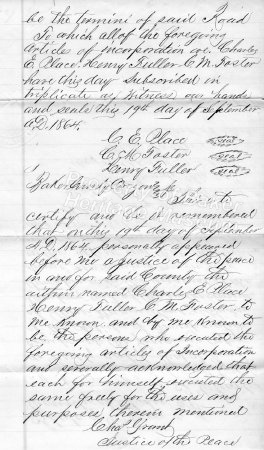 be the termini of said Road
To which all of the foregoing
Articles of incorporation we. Charles
E. Place. Henry Fuller C. M. Foster
have this day Subscribed in
triplicate as Witness our hands
and seals this 19th day of September
A.D. 1864.
C. E. Place seal
C. M. Foster seal
Henry Fuller seal
Baker County Oregon
This is to
certify and be it remembered
that on this 19th day of September
A.D. 1864 personally appeared
before me a justice of the peace
in and for said County the
within named Charles E. Place
Henry Fuller C. M. Foster. to
me known and by me known to
be the persons who executed the
foregoing articles of Incorporation
and severally acknowledged that
each for himself executed the
same freely for the uses and
purposes therein mentioned
Chas Grant
Justice of the Peace